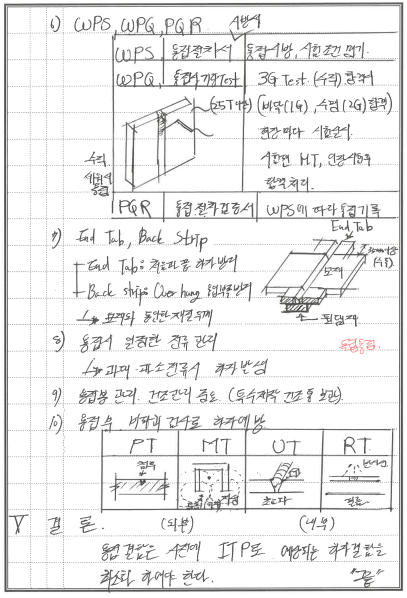 6) WPS, WPQ, PQR 시방서
WPS 용접절차서 용접시방, 시험조건 명기.
WPQ 용접사 기량 Test 3G Test (수직) 합격시
(25T 이상) (비막(1G), 수평(2G) 합격)
현장마다 시험실시.
시험편 MT, 인장시험후
합격처리.
수직
용접
PQR 용접절차검증서 WPS에 따라 용접기록
7) End Tab, Back Strip
End Tab
End Tab은 처음과 끝 하자방지
모재
Back strip은 Over hang 용접부
모재와 동일한 재질 두께
뒷댐재
8) 용접시 일정한 전류 관리
용접
과대·과소전류시 하자 발생
9) 용접봉 관리 건조관리 중요 (특수제작 건조통 보관)
10) 용접부 비파괴 검사로 하자예방
PT MT UT RT
침투
초음파
필름
(외부) (내부)
V 결론.
용접결함은 사전에 ITP로 예상되는 하자결함을
최소화 하여야 한다. "끝"